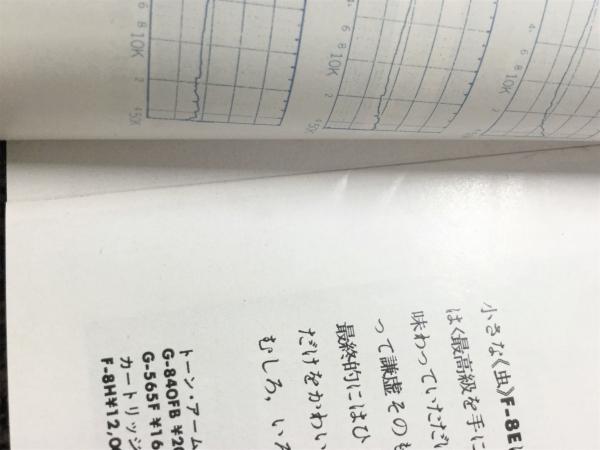 6 8 10K 2 45K
6 8 10K 2 45K
4 6 8 10K 2
小さな《虫》F-8E
はく最高級を手に
味わっていただ
って謙虚そのも
最終的にはひ
だけをかわい
むしろ、いろ
トーン・アーム
G-840FB ¥20
G-565F ¥16
カートリッジ
F-8H ¥12,00